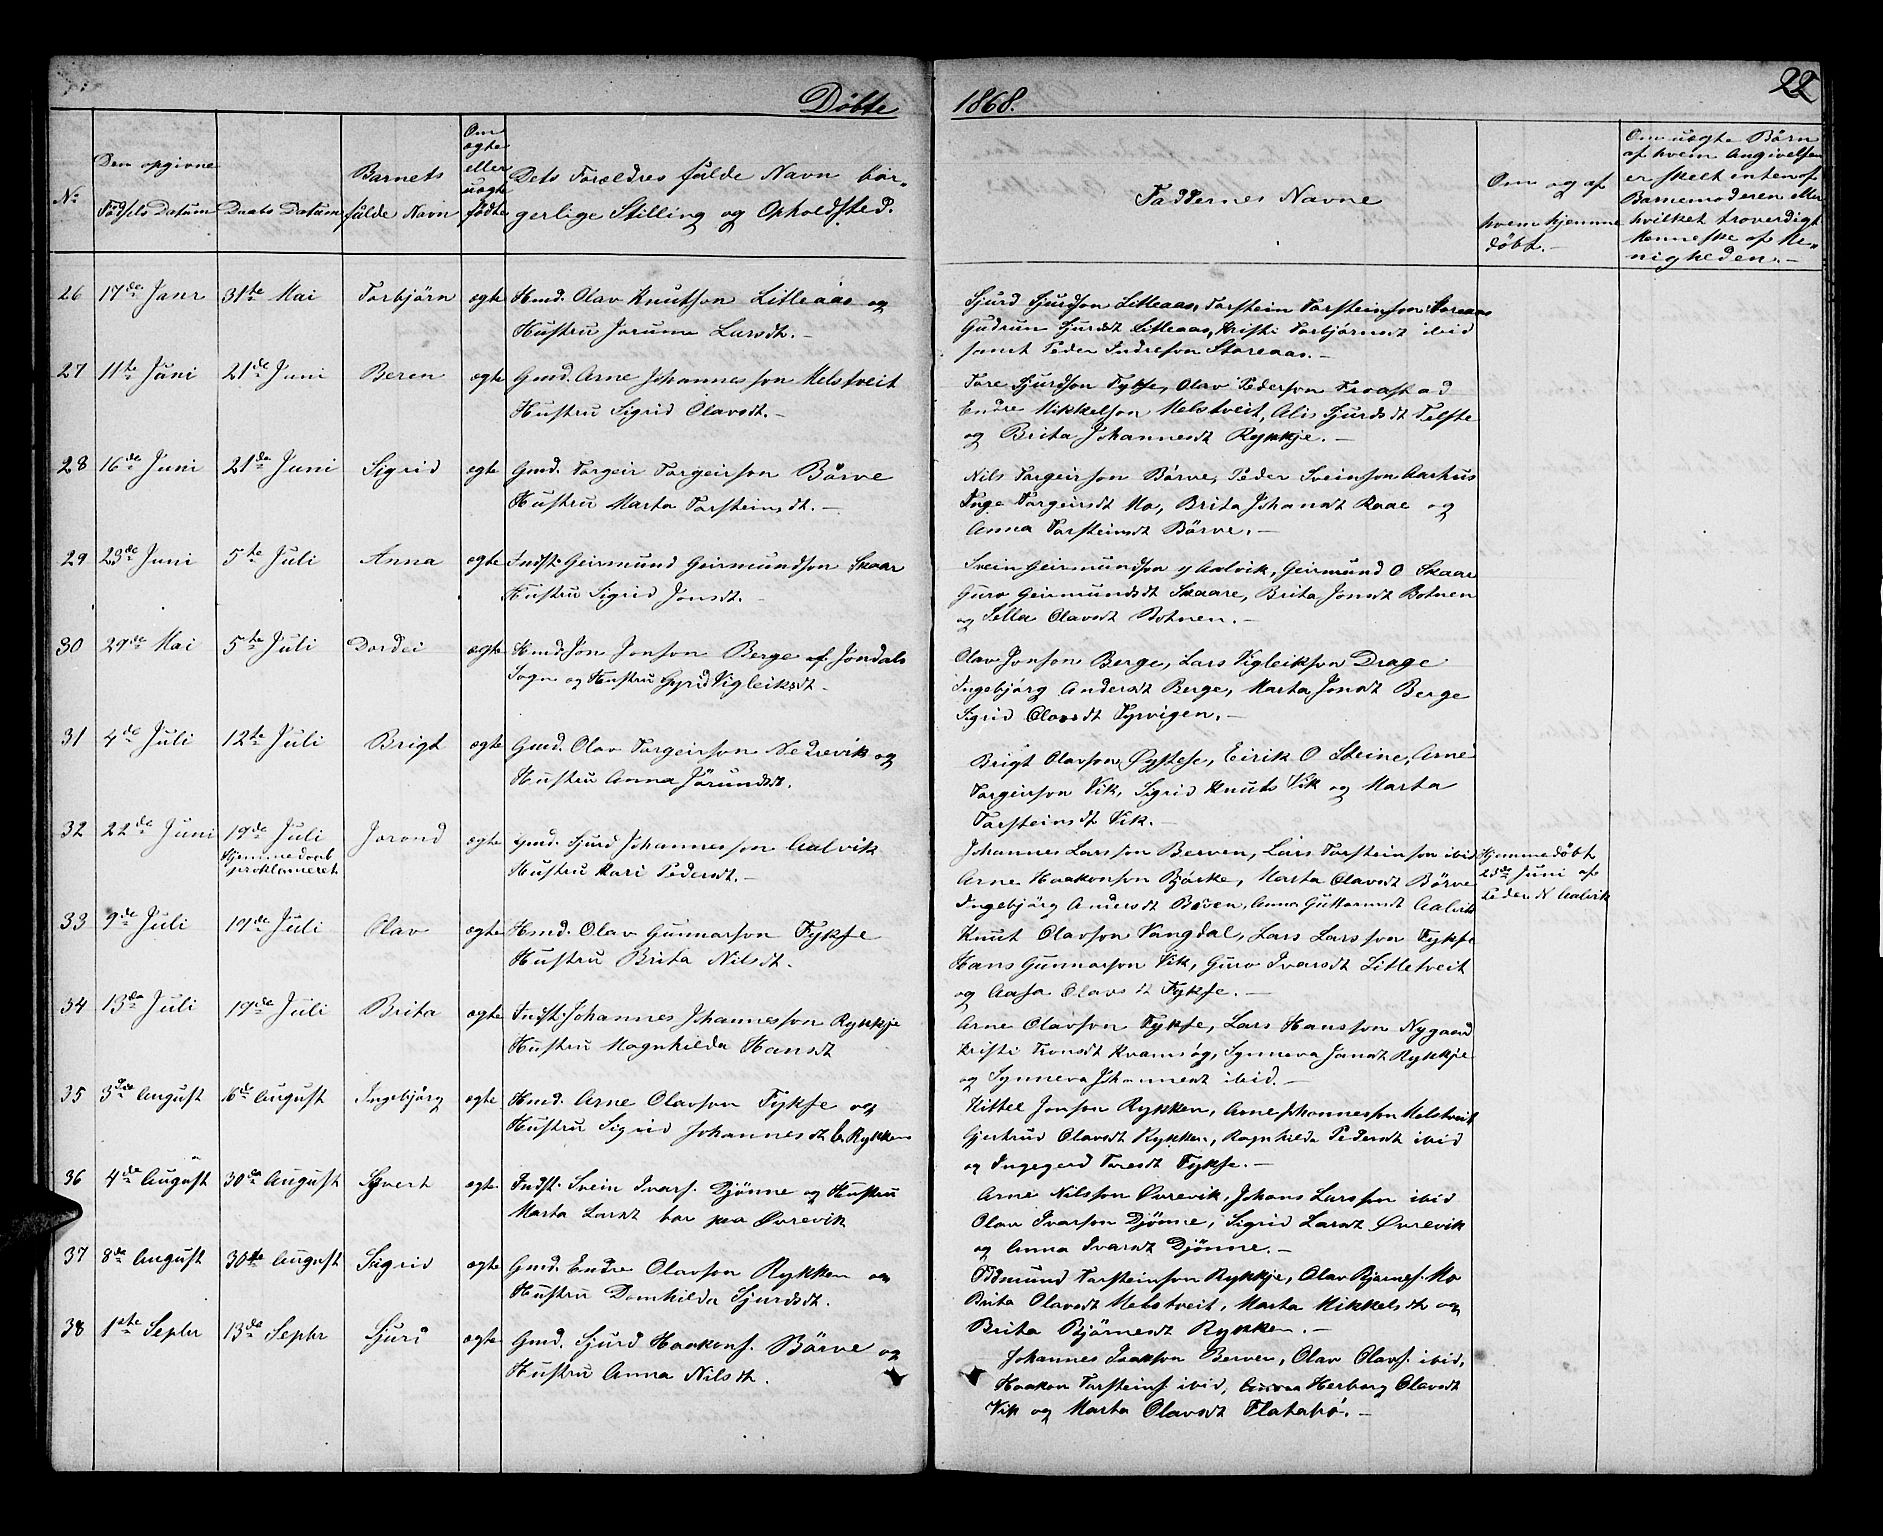 22
Döbte 1868.
No
Den opgivne
Födsels Datum
Daabs Datum
Barnets
fulde Navn
Om
ægte
eller
uægte
födte
Dets Forældres fulde Navn bor-
gerlige Stilling og Opholdsted.
Faddernes Navne
Om og af
hvem hjemme
döbt.-
Om uægte Börn
af hvem Angivelsen
er skelt enten af
Barnemoderen eller
hvilket troverdigt
Menneske af Me-
nigheden.-
26 17de Janr 31te Mai Torbjörn ægte Hmd. Olav Knutson Litleaas og
Hustru Jorunn Larsdt.-
Sjurd Sjurdson Litleaas, Torstein Torsteinson Storeaas
Gudrun Sjurdt Litleaas, Kristi Torbjörnsdt ibid
samt Peder Indreson Storeaas.-
27 11te Juni 21de Juni Beren ægte Gmd. Arne Johannesson Melstveit
Hustru Sigrid Olavsdt.-
Tore Sjurdson Fykse, Olav Pederson Froastad
Endre Mikkelson Melstveit, Alis Sjurdsdt Telste
og Brita Johannesdt Rykkje.-
28 16de Juni 21de Juni Sigrid ægte Gmd. Torgeir Torgeirson Börve
Hustru Marta Torsteinsdt.-
Nils Torgeirson Börve, Peder Sveinson Aarhus
Inge Torgeirsdt Mo, Brita Johansdt Raae og
Anna Torsteinsdt Börve.-
29 23de Juni 5te Juli Anna ægte Indst. Geirmund Geirmundson Skaar
Hustru Sigrid Jonsdt.-
Svein Geirmundson y Aalvik, Geirmund O Skaar
Guro Geirmundsdt Skaare, Brita Jonsdt Botnen
og Sella Olavsdt Botnen.-
30 29de Mai 5te Juli Dordei ægte Hmd. Jon Jonson Berge af Jondals
Sogn og Hustru Gyrid Vigleiksdt-
Olav Jonson Berge, Lars Vigleikson Drage
Ingebjörg Andersdt Berge, Marta Jonsdt Berge
Sigrid Olavsdt Tyrvigen.-
31 4de Juli 12te Juli Brigt ægte Gmd. Olav Torgeirson Nedrevik og
Hustru Anna Jörundsdt.
Brigt Olavson Öystese, Eirik O Steine, Arne
Torgeirson Vik, Sigrid Knuts Vik og Marta
Torsteinsdt Vik.-
32 22de Juni 19de Juli Jorond ægte Gmd. Sjurd Johannesson Aalvik
Hjemmedaab
proklameret
Hustru Kari Pedersdt.-
Johannes Larsson Berven, Lars Torsteinson ibid
Arne Haakonson Bjørke, Marta Olavsdt Börve
Ingebjörg Andersdt Böen, Anna Guttormsdt Aalvik
Hjemmedöbt
23de Juni af
Peder N Aalvik
33 9de Juli 19de Juli Olav ægte Hmd. Olav Gunnarson Fykse
Hustru Brita Nilsdt.
Knut Olavson Vangdal, Lars Larsson Fykse
Hans Gunnarson Vik, Guro Ivarsdt Litletveit
og Aasa Olavsdt Fykse.-
34 13de Juli 19de Juli Brita ægte Indst. Johannes Johannesson Rykkje
Hustru Magnhilda Hansdt
Arne Olavson Fykse, Lars Hansson Nygaard
Kristi Tronsdt Kvamsög, Synneva Jansdt Rykkje
og Synneva Johannesdt ibid.-
35 3die August 16de August Ingebjörg ægte Hmd. Arne Olavson Fykse og
Hustru Sigrid Johannesdt b. Rykken
Kittel Jonson Rykken, Arne Johannesson Melstveit
Gjertrud Olavsdt Rykken, Ragnhilda Pedersdt ibid
og Ingegerd Toresdt Fykse.-
36 4de August 30de August Syvert ægte. Indst. Svein Ivars. Djönne og Hustru
Marta Larsdt bor paa Övrevik
Arne Nilsson Övrevik, Johans Larsson ibid
Olav Ivarson Djönne, Sigrid Larsdt Övrevik
og Anna Ivarsdt Djönne.-
37 8de August 30te August Sigrid ægte Gmd. Endre Olavson Rykken og
Hustru Domhilda Sjurdsdt.
Odmund Torsteinson Rykkje, Olav Bjarnes. Mo
Brita Olavsdt Melstveit, Marta Mikkelsdt og
Brita Bjørnesdt Rykken.-
38 1ste Septbr 13de Septbr Sjuri ægte Gmd. Sjurd Haakons. Börve og
Hustru Anna Nilsdt.
Johannes Isakson Berven, Olav Olavs. ibid,
Haakon Torsteins. ibid, Herborg Olavsdt
Vik og Marta Olavsdt Flatabö.-